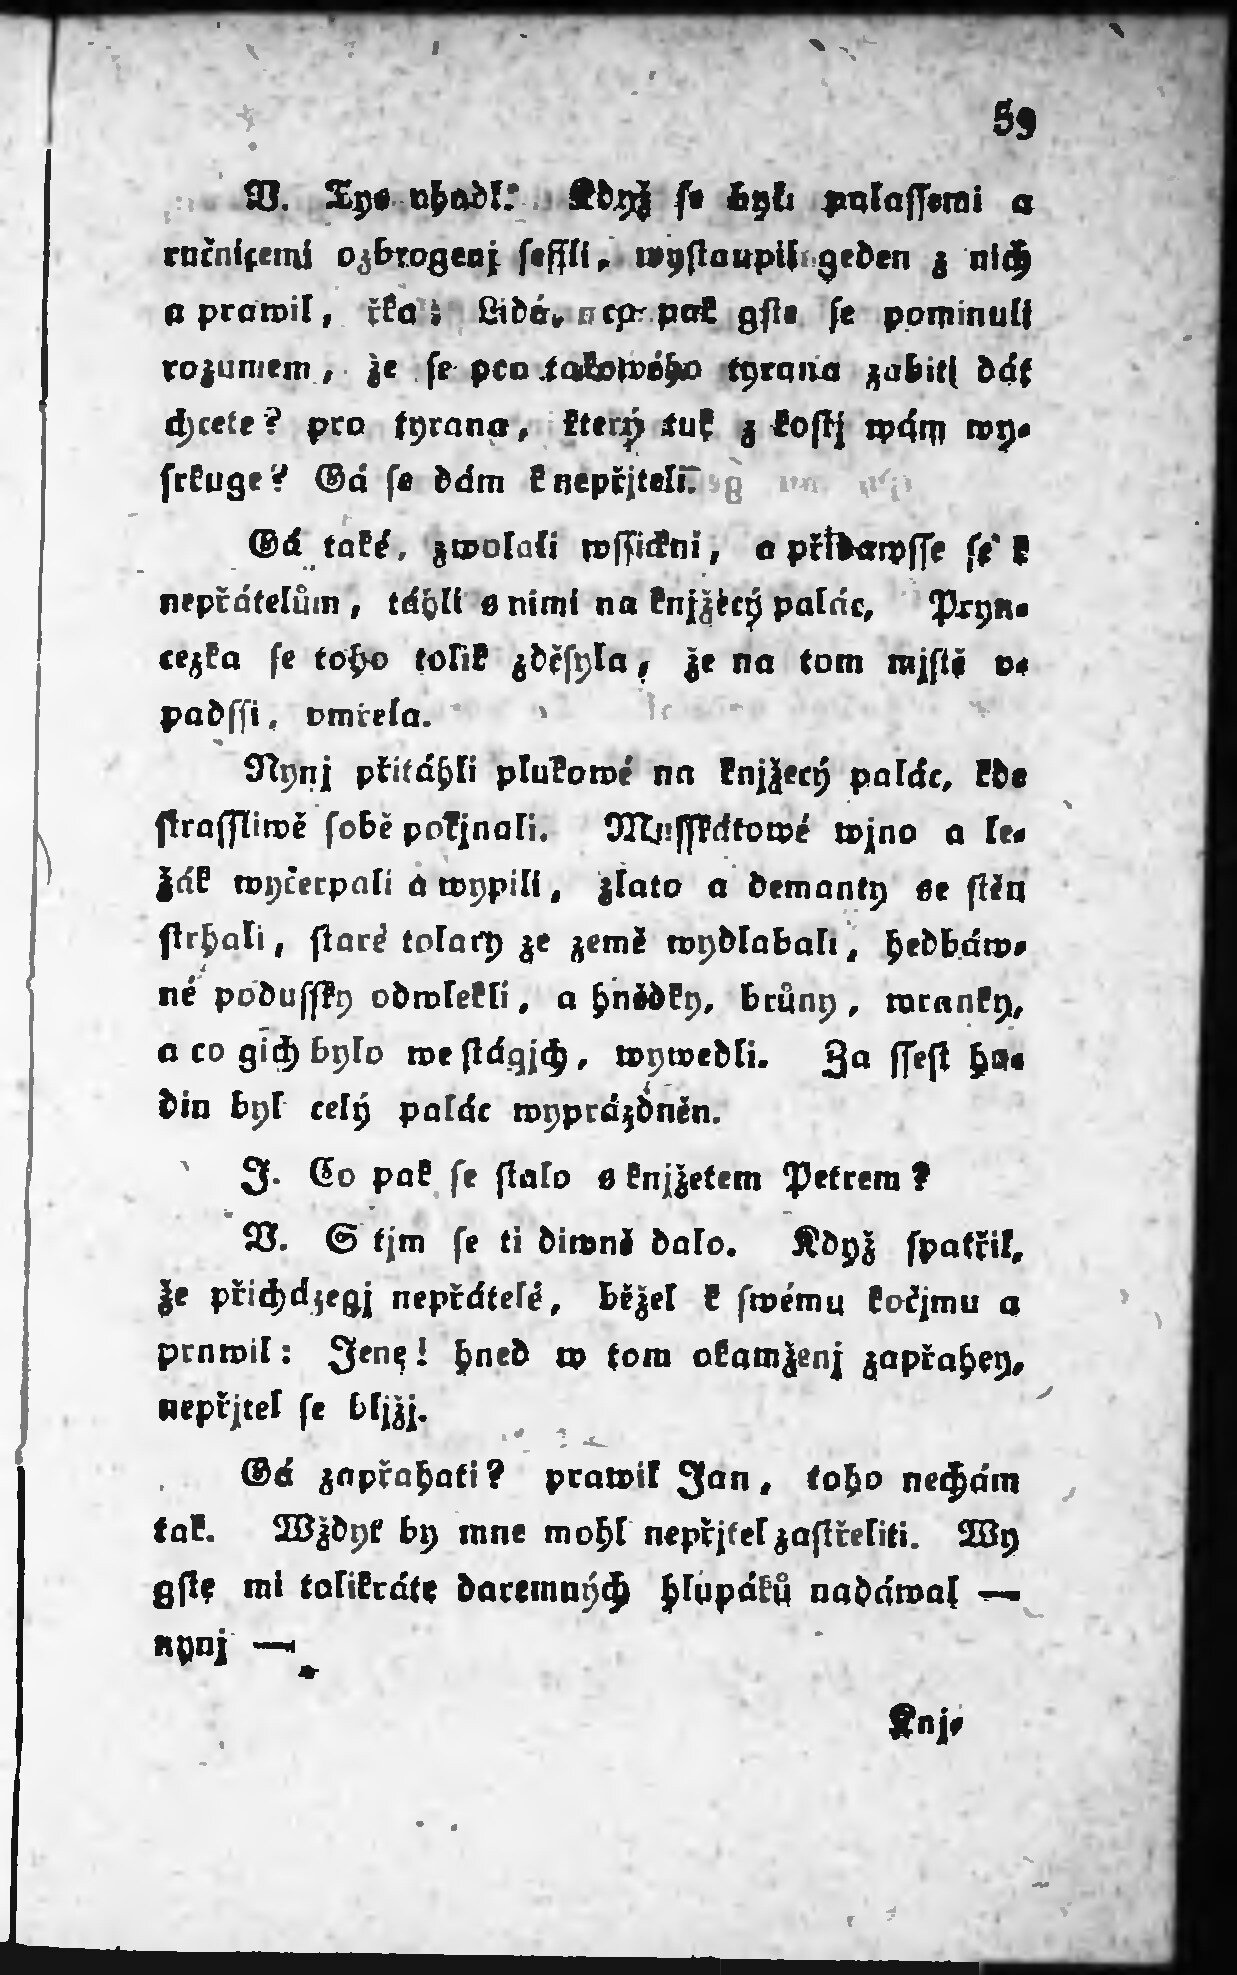 59
W. Tys uhodl. Když se byli palassemi a
ručnicemi ozbrogenj sessli, wystaupil geden z nich
a prawil, řka: Lidé, co pak gste se pominuli
rozumem, že se pro takowého tyrana zabiti dát
chcete? pro tyrana, který tuk z kostj wám wy-
srkuge? Gá se dám k nepřjteli.
Gá také, zwolali wssickni, a přidawsse se k
nepřátelům, táhli s nimi na knjžecý palác, Pryn-
cezka se toho tolik zděsyla, že na tom mjstě v-
padssi, vmřela.
Nynj přitáhli plukowé na knjžecý palác, kde
strassliwě sobě počjnali. Musskátowé wjno a le-
žák wyčerpali a wypili, zlato a demanty se stěn
strhali, staré tolary ze země wydlabali, hedbáw-
né podussky odwlekli, a hnědky, brůny, wranky,
a co gich bylo we stágjch, wywedli. Za ssest ho-
din byl celý palác wyprázdněn.
J. Co pak se stalo s knjžetem Petrem?
W. S tjm se ti diwně dalo. Když spatřil,
že přicházegj nepřátelé, běžel k swému kočjmu a
prawil: Jene! hned w tom okamženj zapřahey,
nepřjtel se bljžj.
Gá zapřahati? prawil Jan, toho nechám
tak. Wždyť by mne mohl nepřjtel zastřeliti. Wy
gste mi tolikráte daremných hlupáků nadáwal —
nynj —
Knj-